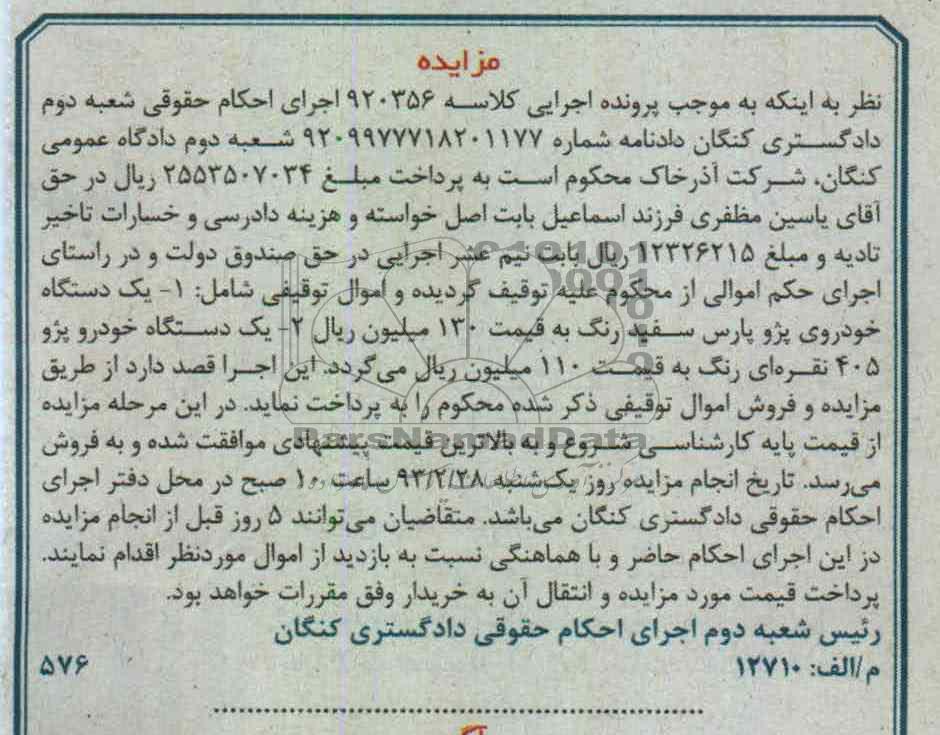 مزایده
نظر به اینکه به موجب پرونده اجرایی کلاسه ۹۲۰۳۵۶ اجرای احکام حقوقی شعبه دوم
دادگستری کنگان دادنامه شماره ۹۲۰۹۹۷۷۷۱۸۲۰۱۱۷۷ شعبه دوم دادگاه عمومی
کنگان، شرکت آذرخاک محکوم است به پرداخت مبلغ ۲۵۵۳۵۰۷۰۳۴ ریال در حق
آقای یاسین مظفری فرزند اسماعیل بابت اصل خواسته و هزینه دادرسی و خسارات تاخیر
تادیه و مبلغ ۱۲۳۲۶۲۱۵ ریال بابت نیم عشر اجرایی در حق صندوق دولت و در راستای
اجرای حکم اموالی از محکوم علیه توقیف گردیده و اموال توقیفی شامل: ۱- یک دستگاه
خودروی پژو پارس سفید رنگ به قیمت ۱۳۰ میلیون ریال ۲- یک دستگاه خودرو پژو
۴۰۵ نقره‌ای رنگ به قیمت ۱۱۰ میلیون ریال می‌گردد. این اجرا قصد دارد از طریق
مزایده و فروش اموال توقیفی ذکر شده محکوم را به پرداخت نماید. در این مرحله مزایده
از قیمت پایه کارشناسی شروع و به بالاترین قیمت پیشنهادی موافقت شده و به فروش
می‌رسد. تاریخ انجام مزایده روز یک‌شنبه ۹۳/۲/۲۸ ساعت ۱۰ صبح در محل دفتر اجرای
احکام حقوقی دادگستری کنگان می‌باشد. متقاضیان می‌توانند ۵ روز قبل از انجام مزایده
در این اجرای احکام حاضر و با هماهنگی نسبت به بازدید از اموال موردنظر اقدام نمایند.
پرداخت قیمت مورد مزایده و انتقال آن به خریدار وفق مقررات خواهد بود.
رئیس شعبه دوم اجرای احکام حقوقی دادگستری کنگان
م/الف: ۱۲۷۱۰ ۵۷۶
ParsNamadData